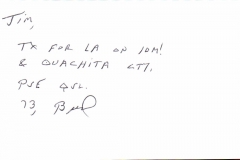 Jim,
TX FOR LA ON 10M!
& OUACHITA CTY.
PSE QSL.
73, Bill